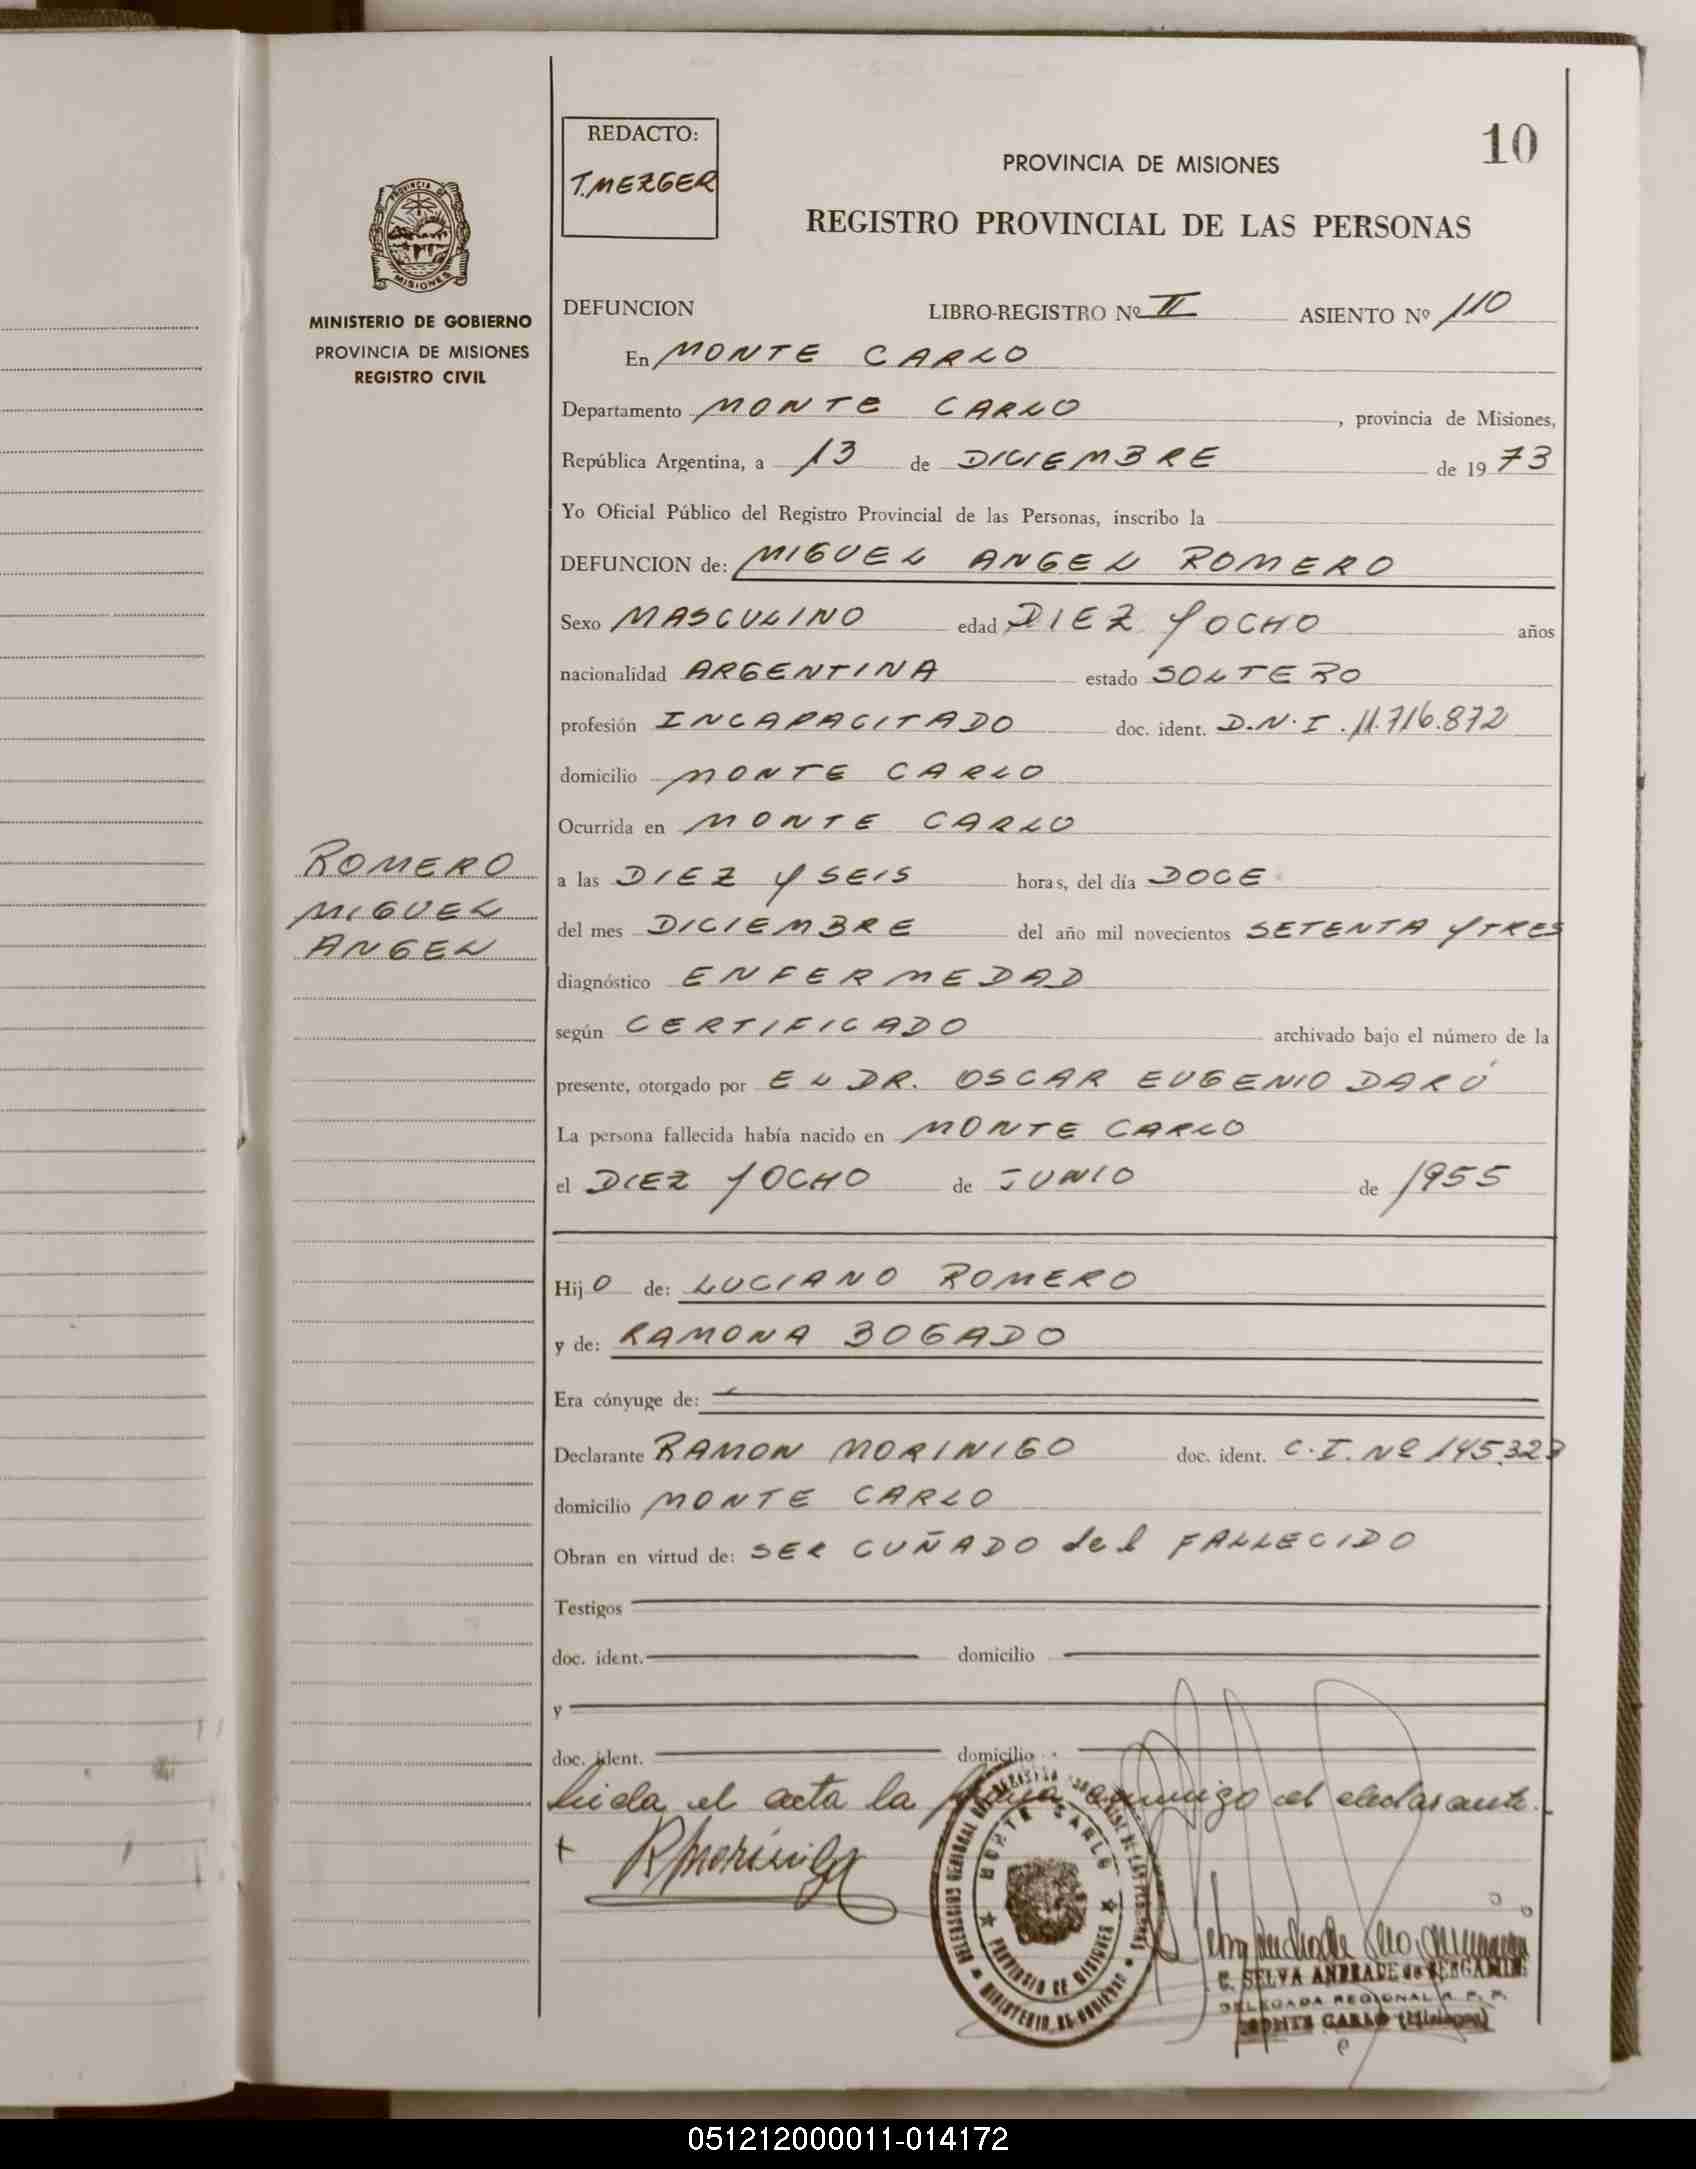 10
REDACTO:
T. MEZGER
PROVINCIA DE MISIONES
REGISTRO PROVINCIAL DE LAS PERSONAS
PROVINCIA DE
MISIONES
MINISTERIO DE GOBIERNO
PROVINCIA DE MISIONES
REGISTRO CIVIL
DEFUNCION LIBRO-REGISTRO Nº II ASIENTO Nº 110
En MONTE CARLO
Departamento MONTE CARLO, provincia de Misiones,
República Argentina, a 13 de DICIEMBRE de 1973
Yo Oficial Público del Registro Provincial de las Personas, inscribo la
DEFUNCION de: MIGUEL ANGEL ROMERO
Sexo MASCULINO edad DIEZ Y OCHO años
nacionalidad ARGENTINA estado SOLTERO
profesión INCAPACITADO doc. ident. D.N.I. 11.716.872
domicilio MONTE CARLO
Ocurrida en MONTE CARLO
ROMERO
MIGUEL
ANGEL
a las DIEZ Y SEIS horas, del día DOCE
del mes DICIEMBRE del año mil novecientos SETENTA Y TRES
diagnóstico ENFERMEDAD
según CERTIFICADO archivado bajo el número de la
presente, otorgado por EL DR. OSCAR EUGENIO DARÚ
La persona fallecida había nacido en MONTE CARLO
el DIEZ Y OCHO de JUNIO de 1955
Hijo de: LUCIANO ROMERO
y de: RAMONA BOGADO
Era cónyuge de:
Declarante RAMON MORINIGO doc. ident. C.I. Nº 145.323
domicilio MONTE CARLO
Obran en virtud de: SER CUÑADO del FALLECIDO
Testigos
doc. ident. domicilio
y
doc. ident. domicilio
Leida el acta la firma conmigo el declarante.
R Morinigo
MONTE CARLO
PROVINCIA DE MISIONES
MINISTERIO DE GOBIERNO
C. SELVA ANDRADE de BERGAMINI
DELEGADA REGIONAL R. P. P.
MONTE CARLO (Misiones)
051212000011-014172